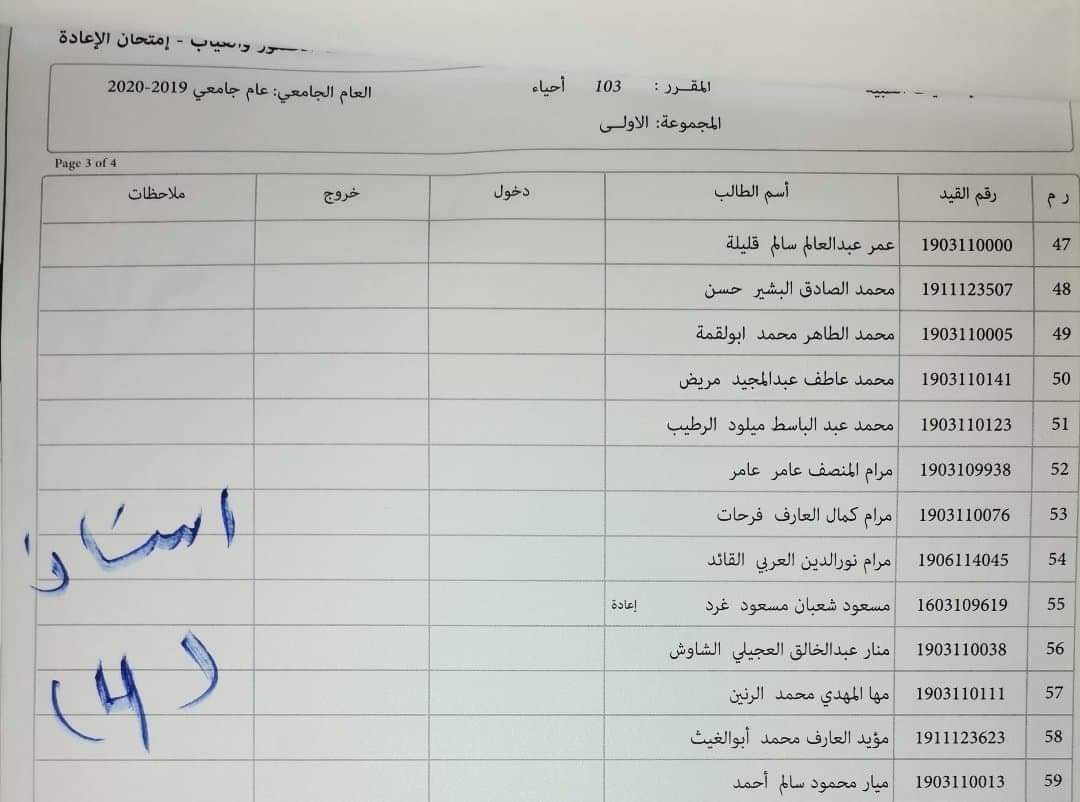 والغياب - إمتحان الإعادة
المقرر : 103 أحياء العام الجامعي: عام جامعي 2019-2020
المجموعة: الاولى
Page 3 of 4
ر م رقم القيد أسم الطالب دخول خروج ملاحظات
47 1903110000 عمر عبدالعالم سالم قليلة
48 1911123507 محمد الصادق البشير حسن
49 1903110005 محمد الطاهر محمد ابولقمة
50 1903110141 محمد عاطف عبدالمجيد مريض
51 1903110123 محمد عبد الباسط ميلود الرطيب
52 1903109938 مرام المنصف عامر عامر
53 1903110076 مرام كمال العارف فرحات
54 1906114045 مرام نورالدين العربي القائد
55 1603109619 مسعود شعبان مسعود غرد إعادة
56 1903110038 منار عبدالخالق العجيلي الشاوش
57 1903110111 مها المهدي محمد الرنين
58 1911123623 مؤيد العارف محمد أبوالغيث
59 1903110013 ميار محمود سالم أحمد
(4)